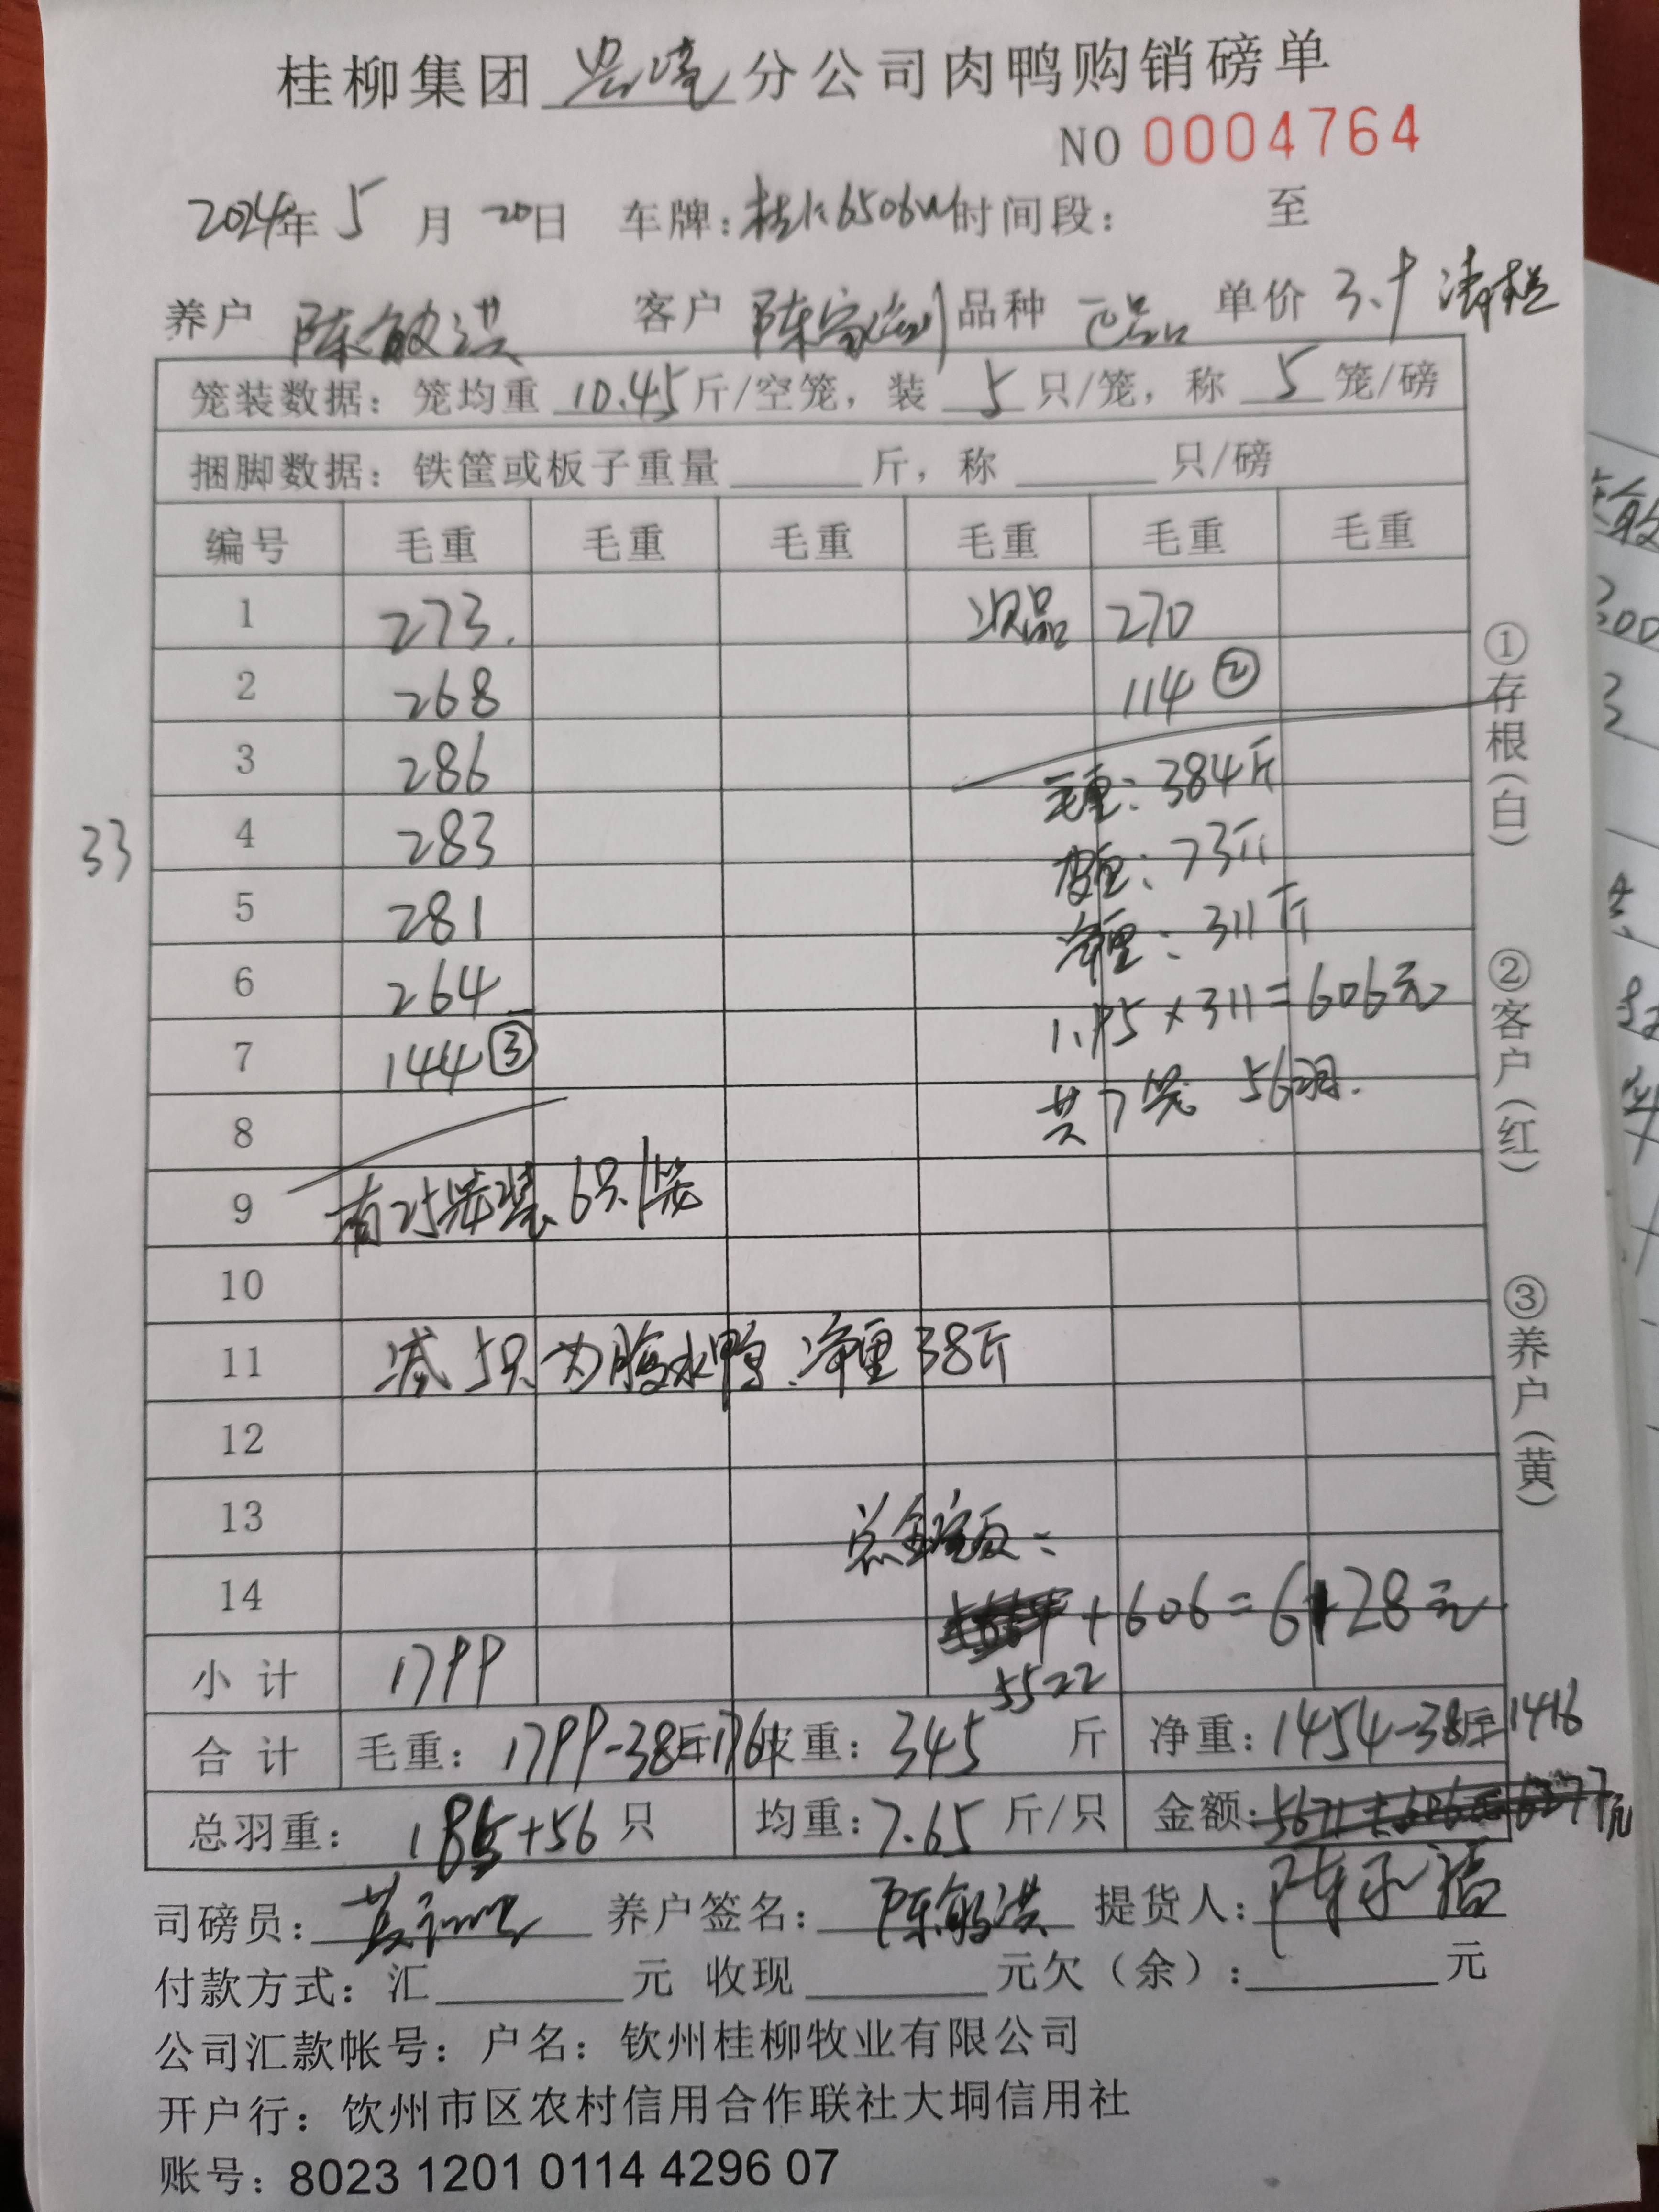 桂柳集团 灵 分公司肉鸭购销磅单
NO 0004764
2024年 5 月 20日 车牌:桂 6506 时间段: 至
养户 陈敏洪 客户 陈家 品种 品 单价 3.9 清栏
笼装数据: 笼均重 10.45 斤/空笼, 装 5 只/笼, 称 5 笼/磅
捆脚数据: 铁筐或板子重量 斤, 称 只/磅
编号 毛重 毛重 毛重 毛重 毛重 毛重
1 273. 次品 270
2 268 114 ②
3 286 毛重: 384斤
33
4 283 皮重: 73斤
5 281 净重: 311斤
6 264 1.95×311=606元
7 144 ③ 共7笼 56羽.
8
9 有25笼装 6只/笼
10
11 减 5只 为腹水鸭. 净重 38斤
12
13 总金额:
14 +606=6128元
5522
小计 1799
合计 毛重: 1799-38斤=1761 皮重: 345 斤 净重: 1454-38斤=1416
总羽重: 185+56 只 均重: 7.65 斤/只 金额:
司磅员: 养户签名: 陈敏洪 提货人: 陈
付款方式: 汇 元 收现 元欠(余): 元
公司汇款帐号: 户名: 钦州桂柳牧业有限公司
开户行: 钦州市区农村信用合作联社大垌信用社
账号: 8023 1201 0114 4296 07
①存根(白)
②客户(红)
③养户(黄)